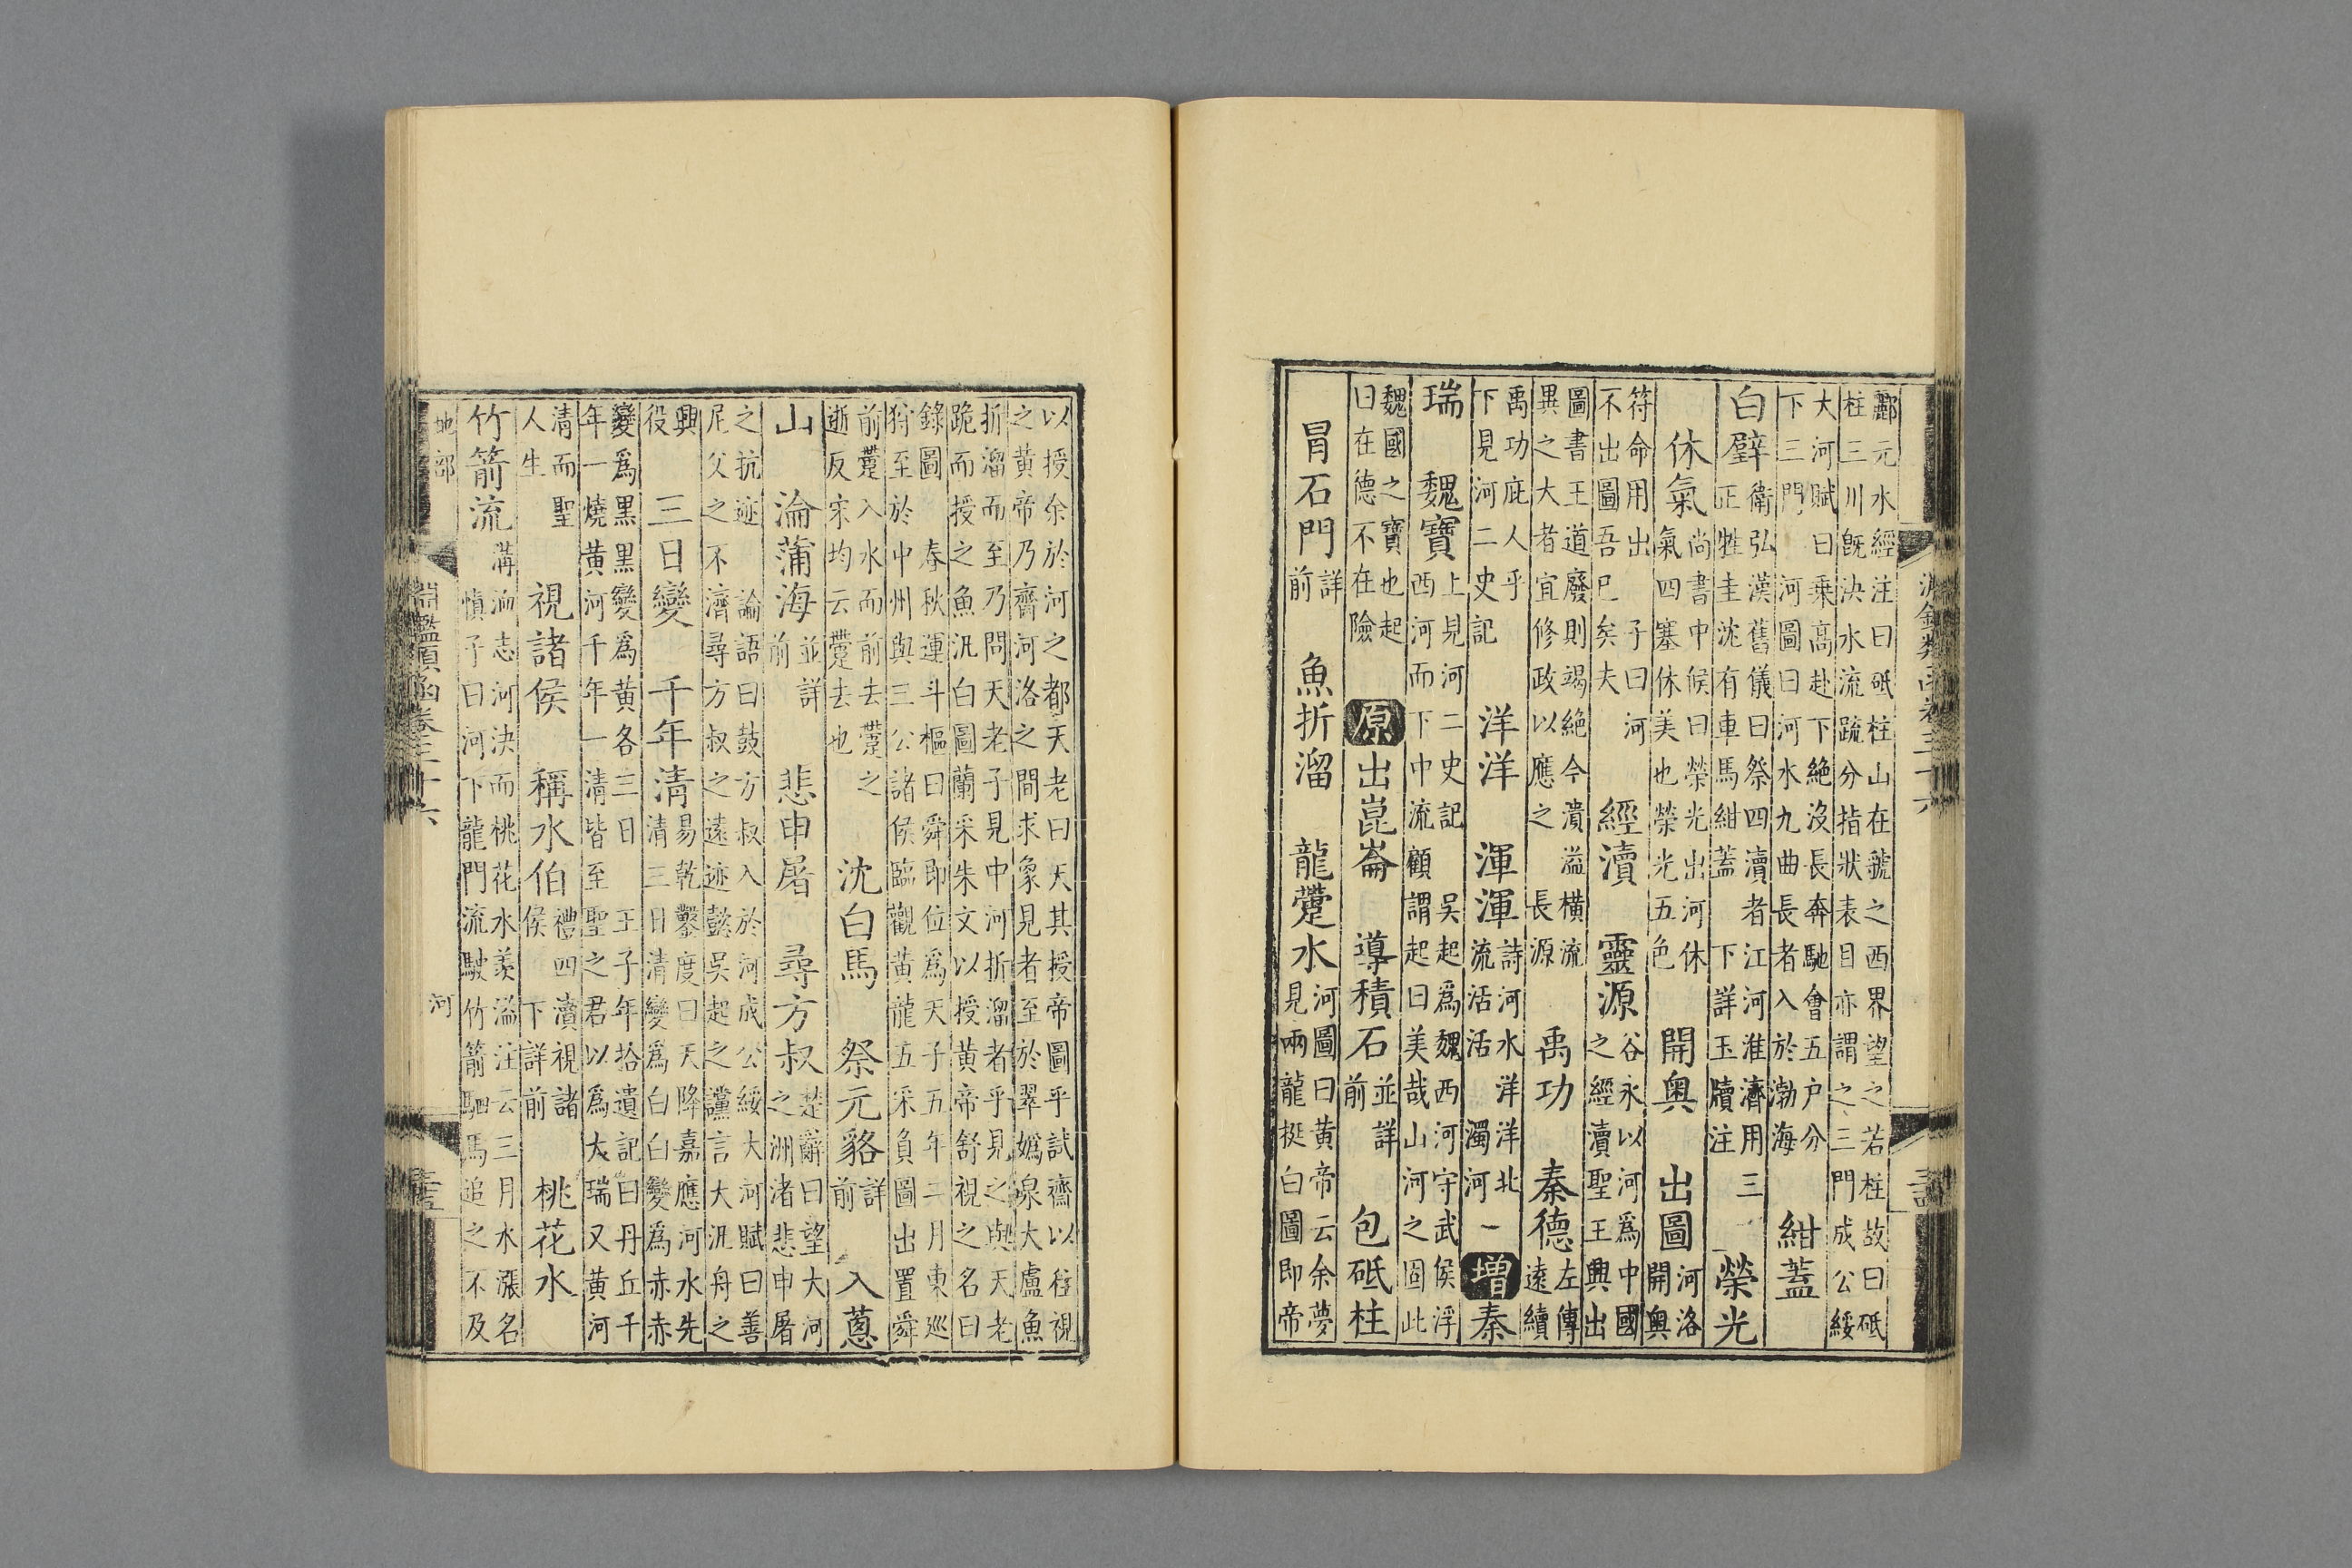 酈元水經注曰砥柱山在虢之西界望之若柱故曰砥
柱三川既決水流疏分指狀表目亦謂之三門成公綏
大河賦曰乗高赴下絶沒長奔馳會五户分
下三門 河圖曰河水九曲長者入於渤海 紺蓋
白璧 衛弘漢舊儀曰祭四瀆者江河淮濟用三
正牲圭沈有車馬紺蓋 下詳玉牘注 榮光
休氣 尚書中候曰榮光出河休
氣四塞休美也榮光五色 開奥 出圖 河洛
開奥
符命用出 子曰河
不出圖吾已矣夫 經瀆 靈源 谷永以河爲中國
之經瀆聖王興出
圖書王道廢則竭絶今潰溢橫流
異之大者宜修政以應之 長源 禹功 秦德 左傳
遠續
禹功庇人乎
下見河二史記 洋洋 渾渾 詩河水洋洋北
流活活 濁河一 増 秦
瑞 魏寶 上見河二史記 吳起爲魏西河守武侯浮
西河而下中流顧謂起曰美哉山河之固此
魏國之寶也起
曰在德不在險 原 出崑崙 導積石 並詳
前 包砥柱
冒石門 詳
前 魚折溜 龍躄水 河圖曰黄帝云余夢
見兩龍挺白圖即帝
淵鑑類函卷三十六
以授余於河之都天老曰天其授帝圖乎試齋以往視
之黄帝乃齋河洛之間求象見者至於翠嬀泉大盧魚
折溜而至乃問天老子見中河折溜者乎見之與天老
跪而授之魚汎白圖蘭采朱文以授黄帝舒視之名曰
錄圖 春秋運斗樞曰舜即位爲天子五年二月東巡
狩至於中州與三公諸侯臨觀黄龍五采負圖出置舜
前躄入水而前去躄之
逝反宋均云躄去也 沈白馬 祭元貉 詳
前 入蔥
山 淪蒲海 並詳
前 悲申屠 尋方叔 楚辭曰望大河
之洲渚悲申屠
之抗迹 論語曰鼓方叔入於河成公綏大河賦曰善
尼父之不濟尋方叔之遠迹懿吳起之讜言大汎舟之
興
役 三日變 千年清 易乾鑿度曰天降嘉應河水先
清三日清變爲白白變爲赤赤
變爲黒黒變爲黄各三日 王子年拾遺記曰丹丘千
年一燒黄河千年一清皆至聖之君以爲大瑞又黄河
清而聖
人生 視諸侯 稱水伯 禮四瀆視諸
侯 下詳前 桃花水
竹箭流 溝洫志河決而桃花水羨溢注云三月水漲名
慎子曰河下龍門流駛竹箭駟馬追之不及
地部 淵鑑類函卷三十六 河